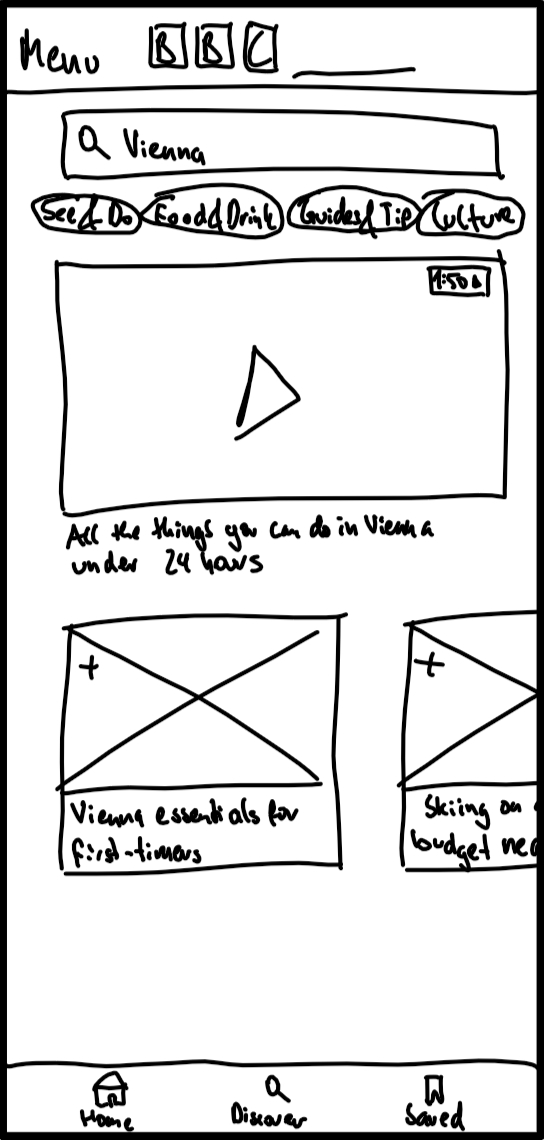 Menu BBC
Vienna
See & Do Food & Drink Guides & Tip Culture
All the things you can do in Vienna
under 24 hours
+ +
Vienna essentials for
first-timers
Skiing on
budget nea
Home Discover Saved